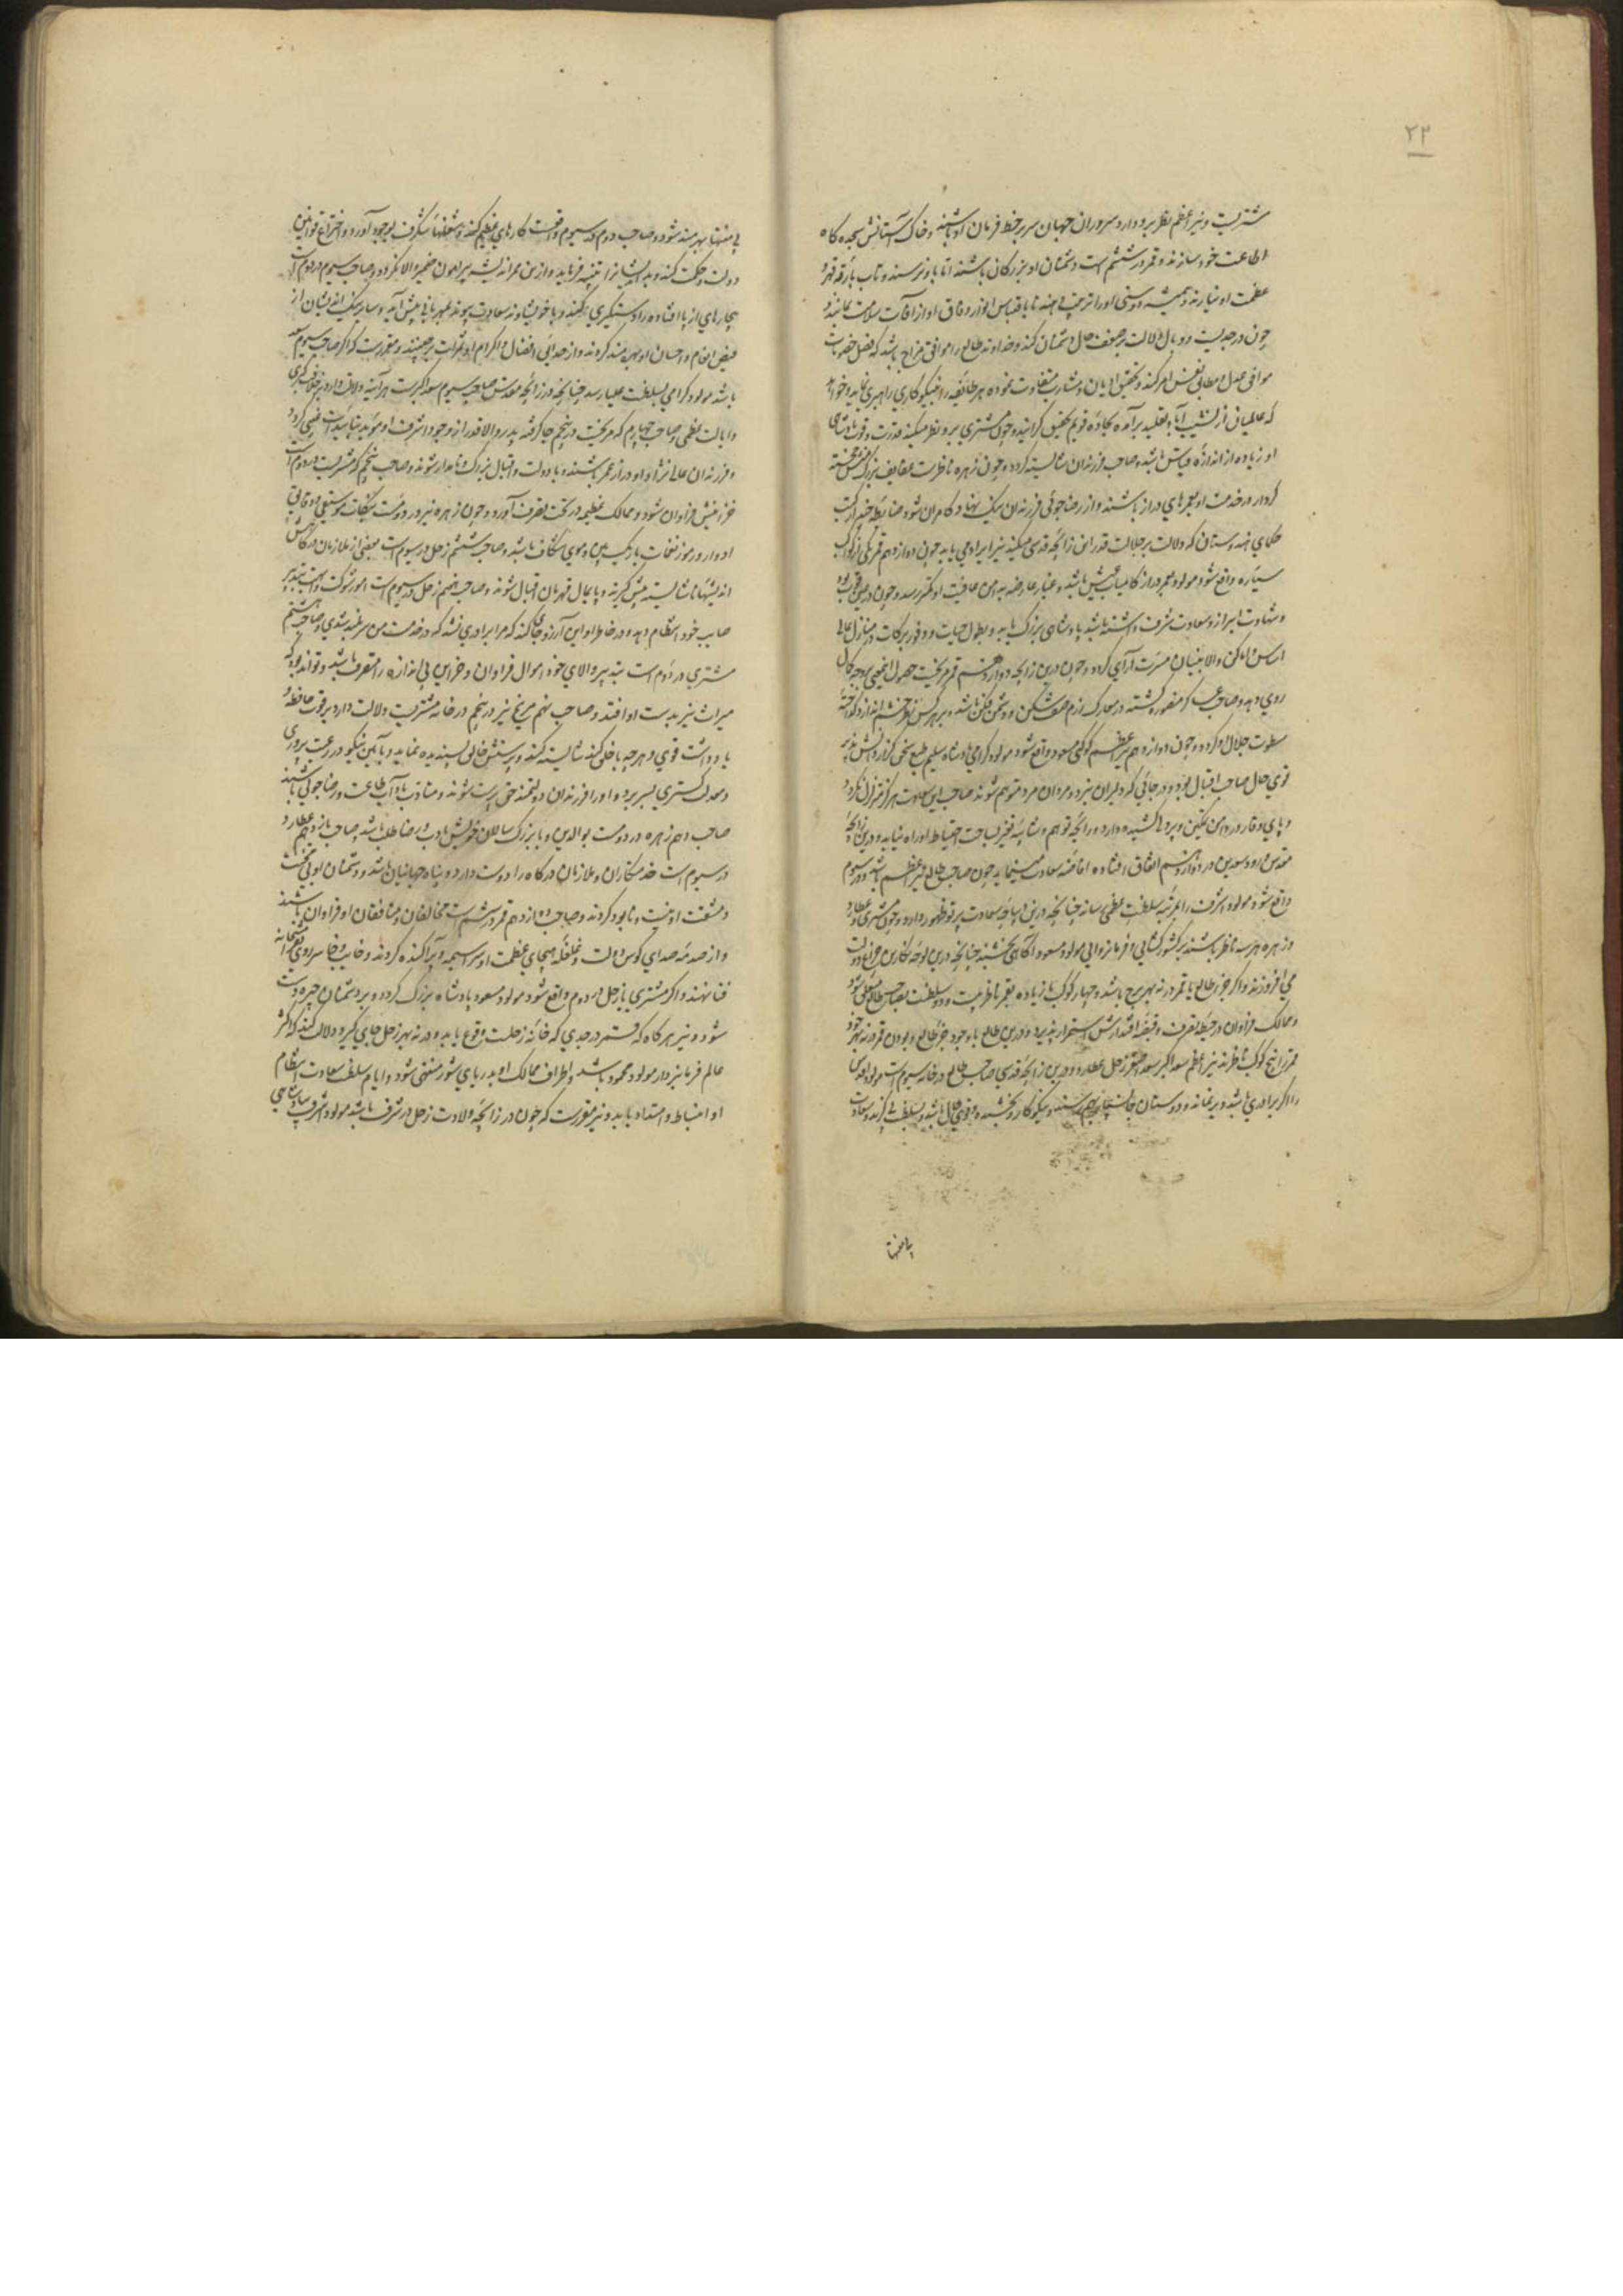 ۲۲
مشتریست و نیر اعظم نظر برو دارد سروران جهان سر بر خط فرمان او باشند و خاک آستانش سجده گاه
اطاعت خود سازند و قمر در ششم است دشمنان او بزرگان باشند اما باو نرسند و تاب بارقه قهر و
عظمت او نیارند و همیشه دوستی او را
چون در جدیست و وبال دلالت بر ضعف حال دشمنان کند و خداوند طالع را موافق مزاج باشد که فصل خصومات
موافق عدل و مطابق نفس امر کند و تحقیق ادیان و مشارب متفاوت نموده هر طائفه را بنیکوکاری راهبری نماید و خواهد
که عالمیان از نشیب آباد تقلید برآمده بجاده قویم تحقیق گرایند و چون مشتری برو نظر میکند قدرت و قوت پادشاهی
او زیاده از اندازه قیاس باشد و صاحب فرزندان شایسته گردد و چون زهره ناظرست عفایف بزرگ منش خجسته
کردار در خدمت او بعمرهای دراز باشند و از رضاجوئی فرزندان نیک نهاد کامران شود ضابطه
حکمای هندوستان که دلالت بر جلالت قدر این زائچه قدسی میکند نیز ایراد می یابد چون دوازدهم قمر یکی از کواکب
سیاره واقع شود مولود بعمر دراز کامیاب عیش باشد و غبار عارضه بدامن عافیت او کمتر رسد و چون
و شهادت
اساس و اماکن والا بنیان مسرت آرای گردد و چون درین زائچه دوازدهم قمر مریخست حصول اینمعنی بوجه کمال
روی دهد و صاحب عساکر منصوره گشته در معارک رزم صف شکن و دشمن فکن باشد و بر هر کس نظر خشم اندازد گداخته
سطوت جلال او گردد و چون دوازدهم نیر اعظم کوکبی مسعود واقع شود مولود گرامی پادشاه سلیم طبع سخن گزار دانش پذیر
قوی حال صاحب اقبال بود و در جائی که دلیران نبرد و مردان مرد متوهم شوند صاحب این سعادت هرگز متزلزل نگردد
و پای وقار در دامن تمکین و پردلی کشیده دارد و رائحه توهم و شایبه تغیر بساحت احتیاط او راه نیابد و درین زائچه
مقدس
واقع شود مولود اشرف را بمرتبه سلطنت عظمی رساند چنانچه درین دیباچه سعادت پرتو ظهور دارد و چون مشتری و عطارد
و زهره هر سه ناظر باشند بر کشورگشایی و فرمانروایی مولود مسعود آگاهی بخشند چنانچه درین لوحه نگارین چراغ دولت
می افروزند و اگر جز طالع یا قمر در نه بهر برج باشد و چهار کوکب یا زیاده بقمر ناظریست دو سلطنت بصاحب طالع متعلق شود
و ممالک فراوان در حیطه تصرف و قبضه اقتدارش استمرار پذیرد و درین طالع با وجود جز طالع و بودن قمر در نه بهر خود
قمر را پنج کوکب ناظرند نیر اعظم سعد اکبر سعد اصغر زحل عطارد و درین زائچه قدسی صاحب طالع در خانه سیوم است مولود اقدس
را اگر برادری باشد دیر نماند و دوستان
یا منتها
بی منتها بهره مند شود و صاحب دوم در سیوم واقعست کارهای عظیم کند و شغلهای شگرف بوجود آورد و اختراع قوانین
دولت و حکمت کند و بداندیشانرا تنبیه فرماید و ازین ممر اندیشه پیرامون ضمیر والا نگردد و صاحب سیوم در دوم است
بیچارهای از پا افتاده را دستگیری کند و با خویشاوند سعادت پیوند بمهربانی پیش آید و سایر نیک اندیشان از
فیض انعام و احسان او بهره مند گردند و از حدایق افضال و اکرام او ثمرات برچینند و مقررست که اگر صاحب سیوم سعد
باشد مولود گرامی بسلطنت علیا رسد چنانچه در زائچه مقدس صاحب سیوم سعد اکبرست هر آئینه دلالت دارد بر خلافت کبری
و ایالت عظمی و صاحب چهارم که مریخست در پنجم جا گرفته پدر والاقدر از وجود اشرف او موید بتأییدات غیبی گردد
و فرزندان عالی نژاد او دراز عمر باشند و با دولت و اقبال بزرگ و نامدار شوند و صاحب پنجم که مشتریست در دوم است
خزاینش فراوان شود و ممالک عظیمه در تحت تصرف آورد و چون زهره نیز در دوست بنکات موسیقی و دقائق
ادوار و رموز نغمات باریک بین و موی شکاف باشد و صاحب ششم زحل در سیوم است بعضی از ملازمان درگاهش
اندیشهای ناشایسته پیش گیرند و پایمال قهرمان اقبال شوند و صاحب هفتم زحل در سیوم است امور شوکت و ابهت بتدبیر
صایب خود انتظام دهد و در خاطر او این آرزو جای کند که مرا برادری نشد که در خدمت من سربلند شدی و صاحب هشتم
مشتری در دوم است بتدبیر والای خود اموال فراوان و خزاین بی اندازه را متصرف باشد و تواند بود که
میراث نیز بدست او افتد و صاحب نهم مریخ نیز در پنجم در خانه مشتریست دلالت دارد بر قوت حافظه
یادداشت قوی و هرچه با خلق کند شایسته کند و پرستش خالق پسندیده نماید و بآئین نیکو در رعیت پروری
و معدلت گستری بسر برد و او را فرزندان دولتمند حق پرست شوند و متادب بآداب طاعت و رضاجوئی باشند
صاحب دهم زهره در دومست بوالدین و با بزرگ سالان خویش بادب و رضاطلب باشد صاحب یازدهم عطارد
در سیوم است خدمتگاران و ملازمان درگاه را دوست دارد و پناه جهانیان باشد و دشمنان او بی محنت
و مشقت او نیست و نابود گردند و صاحب دوازدهم قمر در ششم است مخالفان و منافقان او فراوان باشند
و از صدمه صدای کوس دولت و غلغله هیجای عظمت او سراسیمه و پراکنده گردند و خایب و خاسر رو بمتحصنانه
فنا نهند و اگر مشتری یا زحل در دوم واقع شود مولود مسعود پادشاه بزرگ گردد و بر دشمنان چیره دست
شود و نیز هرگاه که قمر در جدی که خانه زحلست وقوع یابد و در نه بهر زحل جای گیرد دلالت کند که اکثر
عالم فرمانبردار مولود محمود باشد و اطراف ممالک او بدریای شور منتهی شود و ایام سلطنت سعادت انتظام
او انبساط و امتداد یابد و نیز مقررست که چون در زائچه ولادت زحل در شرف باشد مولود اشرف پادشاهی